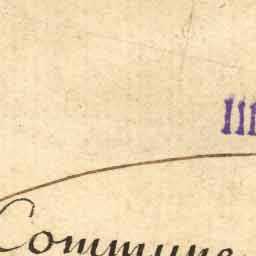 III
Commune